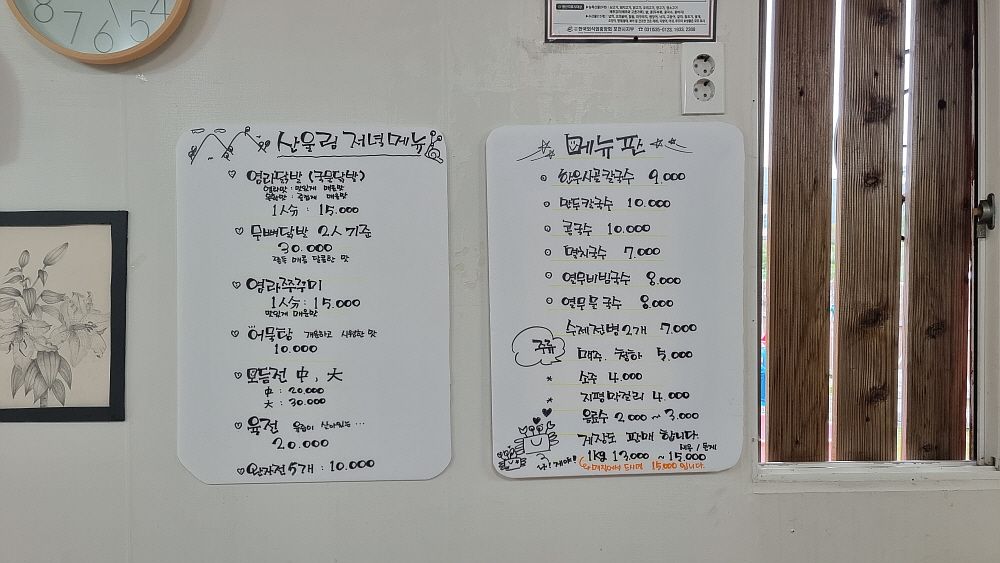 8 7 6 5 4
한국외식업중앙회
산울림 저녁메뉴
염라닭발 (국물닭발)
염라맛 : 맛있게 매운맛
1人分 : 15.000
무뼈닭발 2人 기준
30.000
매콤 달콤한 맛
염라쭈꾸미
1人分 : 15.000
맛있게 매운맛
어묵탕 개운하고 시원한 맛
10.000
모듬전 中, 大
中 : 20.000
大 : 30.000
육전 육즙이 살아있는...
20.000
완자전 5개 : 10.000
메뉴판
한우사골칼국수 9.000
만두칼국수 10.000
콩국수 10.000
멸치국수 7.000
열무비빔국수 8.000
열무물국수 8.000
수제전병2개 7.000
주류
맥주. 청하 5.000
소주 4.000
지평막걸리 4.000
음료수 2.000 ~ 3.000
게장도 판매 합니다
1kg 13.000 ~ 15.000
드시면 15.000 입니다.